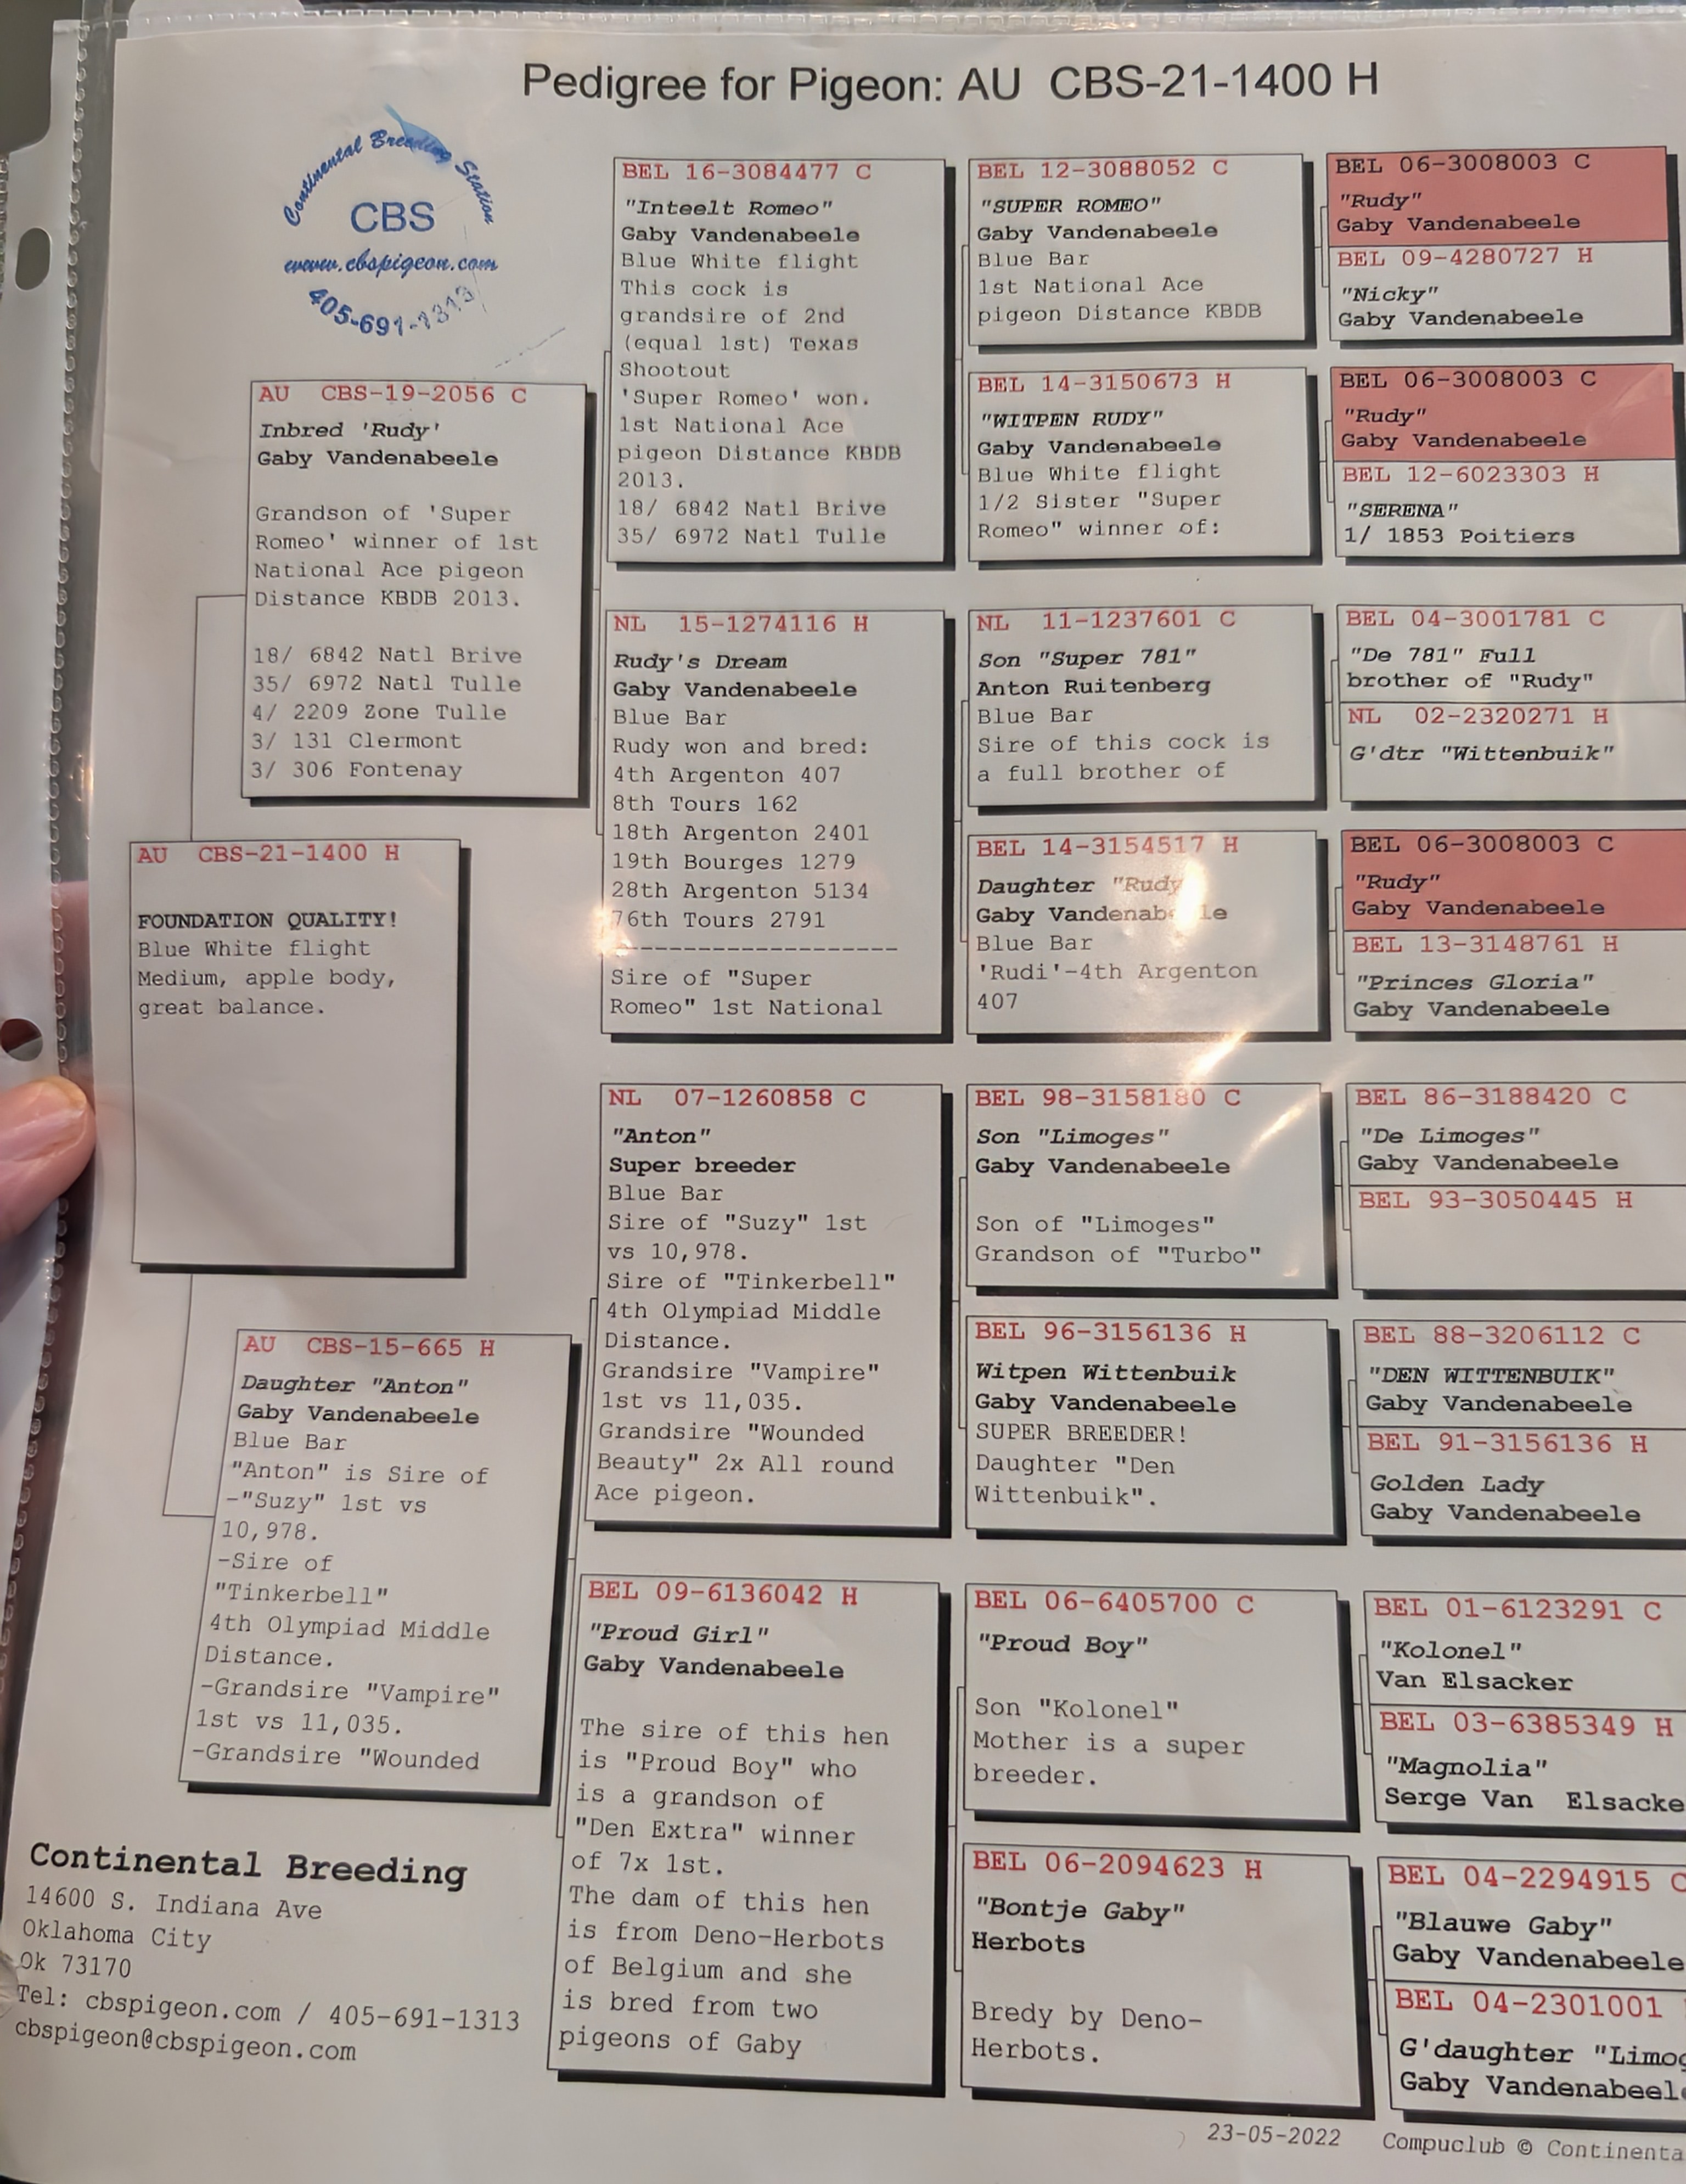 Pedigree for Pigeon: AU CBS-21-1400 H
Continental Breeding Station
CBS
www.cbspigeon.com
405-691-1313
AU CBS-21-1400 H
FOUNDATION QUALITY!
Blue White flight
Medium, apple body,
great balance.
AU CBS-19-2056 C
Inbred 'Rudy'
Gaby Vandenabeele
Grandson of 'Super
Romeo' winner of 1st
National Ace pigeon
Distance KBDB 2013.
18/ 6842 Natl Brive
35/ 6972 Natl Tulle
4/ 2209 Zone Tulle
3/ 131 Clermont
3/ 306 Fontenay
AU CBS-15-665 H
Daughter "Anton"
Gaby Vandenabeele
Blue Bar
"Anton" is Sire of
-"Suzy" 1st vs
10,978.
-Sire of
"Tinkerbell"
4th Olympiad Middle
Distance.
-Grandsire "Vampire"
1st vs 11,035.
-Grandsire "Wounded
BEL 16-3084477 C
"Inteelt Romeo"
Gaby Vandenabeele
Blue White flight
This cock is
grandsire of 2nd
(equal 1st) Texas
Shootout
'Super Romeo' won.
1st National Ace
pigeon Distance KBDB
2013.
18/ 6842 Natl Brive
35/ 6972 Natl Tulle
NL 15-1274116 H
Rudy's Dream
Gaby Vandenabeele
Blue Bar
Rudy won and bred:
4th Argenton 407
8th Tours 162
18th Argenton 2401
19th Bourges 1279
28th Argenton 5134
76th Tours 2791
--------------------
Sire of "Super
Romeo" 1st National
NL 07-1260858 C
"Anton"
Super breeder
Blue Bar
Sire of "Suzy" 1st
vs 10,978.
Sire of "Tinkerbell"
4th Olympiad Middle
Distance.
Grandsire "Vampire"
1st vs 11,035.
Grandsire "Wounded
Beauty" 2x All round
Ace pigeon.
BEL 09-6136042 H
"Proud Girl"
Gaby Vandenabeele
The sire of this hen
is "Proud Boy" who
is a grandson of
"Den Extra" winner
of 7x 1st.
The dam of this hen
is from Deno-Herbots
of Belgium and she
is bred from two
pigeons of Gaby
BEL 12-3088052 C
"SUPER ROMEO"
Gaby Vandenabeele
Blue Bar
1st National Ace
pigeon Distance KBDB
BEL 14-3150673 H
"WITPEN RUDY"
Gaby Vandenabeele
Blue White flight
1/2 Sister "Super
Romeo" winner of:
NL 11-1237601 C
Son "Super 781"
Anton Ruitenberg
Blue Bar
Sire of this cock is
a full brother of
BEL 14-3154517 H
Daughter "Rudy
Gaby Vandenabeele
Blue Bar
'Rudi'-4th Argenton
407
BEL 98-3158180 C
Son "Limoges"
Gaby Vandenabeele
Son of "Limoges"
Grandson of "Turbo"
BEL 96-3156136 H
Witpen Wittenbuik
Gaby Vandenabeele
SUPER BREEDER!
Daughter "Den
Wittenbuik".
BEL 06-6405700 C
"Proud Boy"
Son "Kolonel"
Mother is a super
breeder.
BEL 06-2094623 H
"Bontje Gaby"
Herbots
Bredy by Deno-
Herbots.
BEL 06-3008003 C
"Rudy"
Gaby Vandenabeele
BEL 09-4280727 H
"Nicky"
Gaby Vandenabeele
BEL 06-3008003 C
"Rudy"
Gaby Vandenabeele
BEL 12-6023303 H
"SERENA"
1/ 1853 Poitiers
BEL 04-3001781 C
"De 781" Full
brother of "Rudy"
NL 02-2320271 H
G'dtr "Wittenbuik"
BEL 06-3008003 C
"Rudy"
Gaby Vandenabeele
BEL 13-3148761 H
"Princes Gloria"
Gaby Vandenabeele
BEL 86-3188420 C
"De Limoges"
Gaby Vandenabeele
BEL 93-3050445 H
BEL 88-3206112 C
"DEN WITTENBUIK"
Gaby Vandenabeele
BEL 91-3156136 H
Golden Lady
Gaby Vandenabeele
BEL 01-6123291 C
"Kolonel"
Van Elsacker
BEL 03-6385349 H
"Magnolia"
Serge Van Elsacke
BEL 04-2294915 C
"Blauwe Gaby"
Gaby Vandenabeele
BEL 04-2301001
G'daughter "Limog
Gaby Vandenabeele
Continental Breeding
14600 S. Indiana Ave
Oklahoma City
Ok 73170
Tel: cbspigeon.com / 405-691-1313
cbspigeon@cbspigeon.com
23-05-2022 Compuclub © Continenta